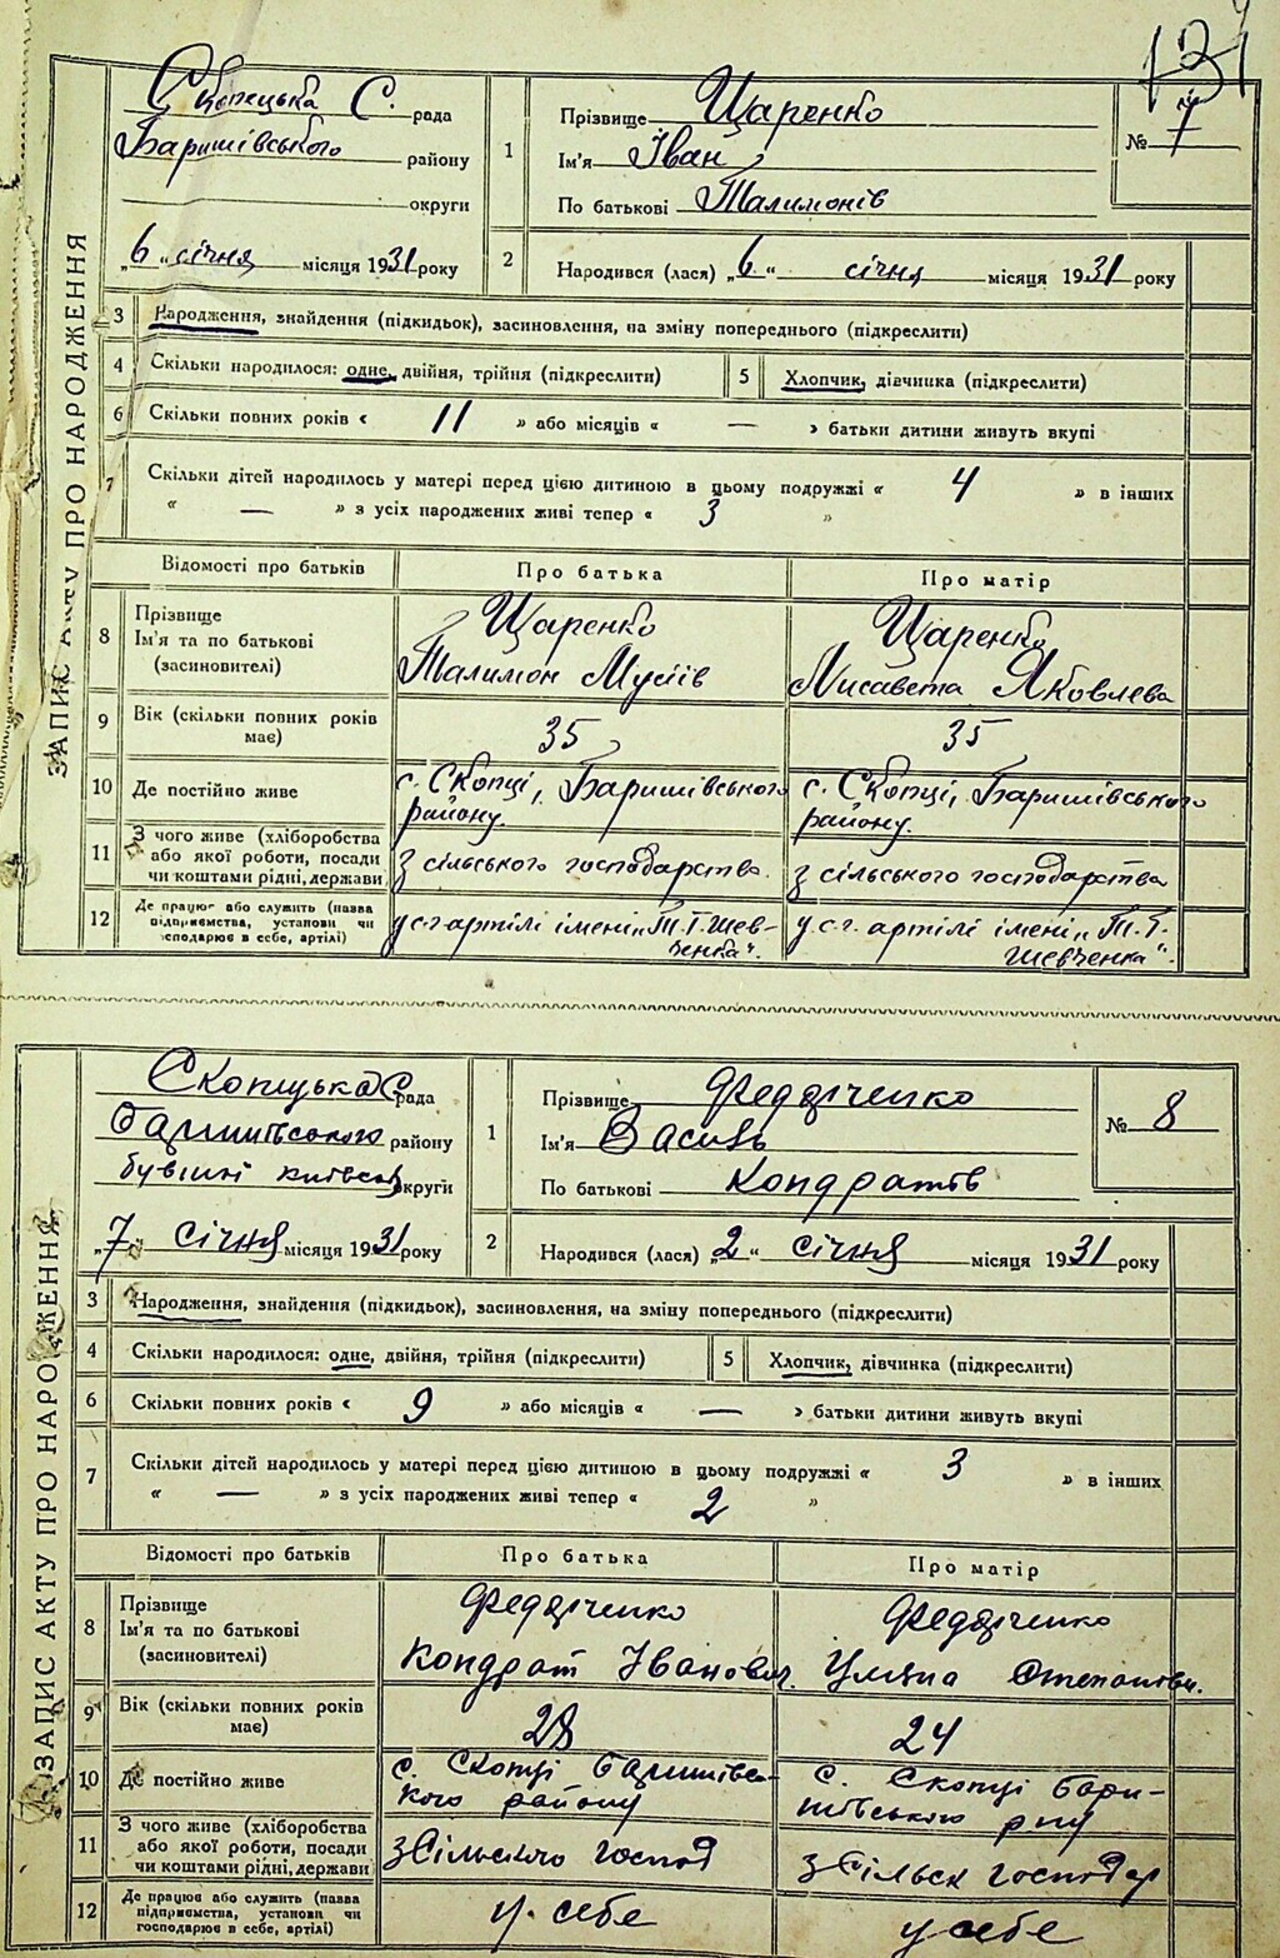 ЗАПИС АКТУ ПРО НАРОДЖЕННЯ
Скопецька С. рада
Баришівського району
округи
„6“ січня місяця 1931 року
1
Прізвище Царенко
Ім'я Іван
По батькові Талимонів
№ 7
2
Народився (лася) „6“ січня місяця 1931 року
3 Народження, знайдення (підкидьок), засиновлення, на зміну попереднього (підкреслити)
4 Скільки народилося: одне, двійня, трійня (підкреслити) 5 Хлопчик, дівчинка (підкреслити)
6 Скільки повних років « 11 » або місяців « — » батьки дитини живуть вкупі
7 Скільки дітей народилось у матері перед цією дитиною в цьому подружжі « 4 » в інших
« — » з усіх народжених живі тепер « 3 »
Відомості про батьків Про батька Про матір
8 Прізвище
Ім'я та по батькові
(засиновителі)
Царенко
Талимон Мусіїв
Царенко
Лисавета Яковлева
9 Вік (скільки повних років має) 35 35
10 Де постійно живе
с. Скопці, Баришівського
району.
с. Скопці, Баришівського
району.
11 З чого живе (хліборобства
або якої роботи, посади
чи коштами рідні, держави
З сільського господарства.
З сільського господарства
12 Де працює або служить (назва
підприємства, установи чи
господарює в себе, артілі)
у с-г артілі імені „Т.Г. Шев-
ченка“.
у с.г. артілі імені „Т.Г.
Шевченка“.
ЗАПИС АКТУ ПРО НАРОДЖЕННЯ
Скопцька С рада
Баришівського району
бувшої Київськ округи
„7“ січня місяця 1931 року
1
Прізвище Феддіченко
Ім'я Василь
По батькові Кондратів
№ 8
2
Народився (лася) „2“ січня місяця 1931 року
3 Народження, знайдення (підкидьок), засиновлення, на зміну попереднього (підкреслити)
4 Скільки народилося: одне, двійня, трійня (підкреслити) 5 Хлопчик, дівчинка (підкреслити)
6 Скільки повних років « 9 » або місяців « — » батьки дитини живуть вкупі
7 Скільки дітей народилось у матері перед цією дитиною в цьому подружжі « 3 » в інших
« — » з усіх народжених живі тепер « 2 »
Відомості про батьків Про батька Про матір
8 Прізвище
Ім'я та по батькові
(засиновителі)
Феддіченко
Кондрат Іванович.
Феддіченко
Уляна Степанівн.
9 Вік (скільки повних років має) 28 24
10 Де постійно живе
с. Скопці Баришівсь-
кого району
с. Скопці Бари-
шівського рну
11 З чого живе (хліборобства
або якої роботи, посади
чи коштами рідні, держави
з Сільського господ
з Сільськ господар
12 Де працює або служить (назва
підприємства, установи чи
господарює в себе, артілі)
у себе
у себе